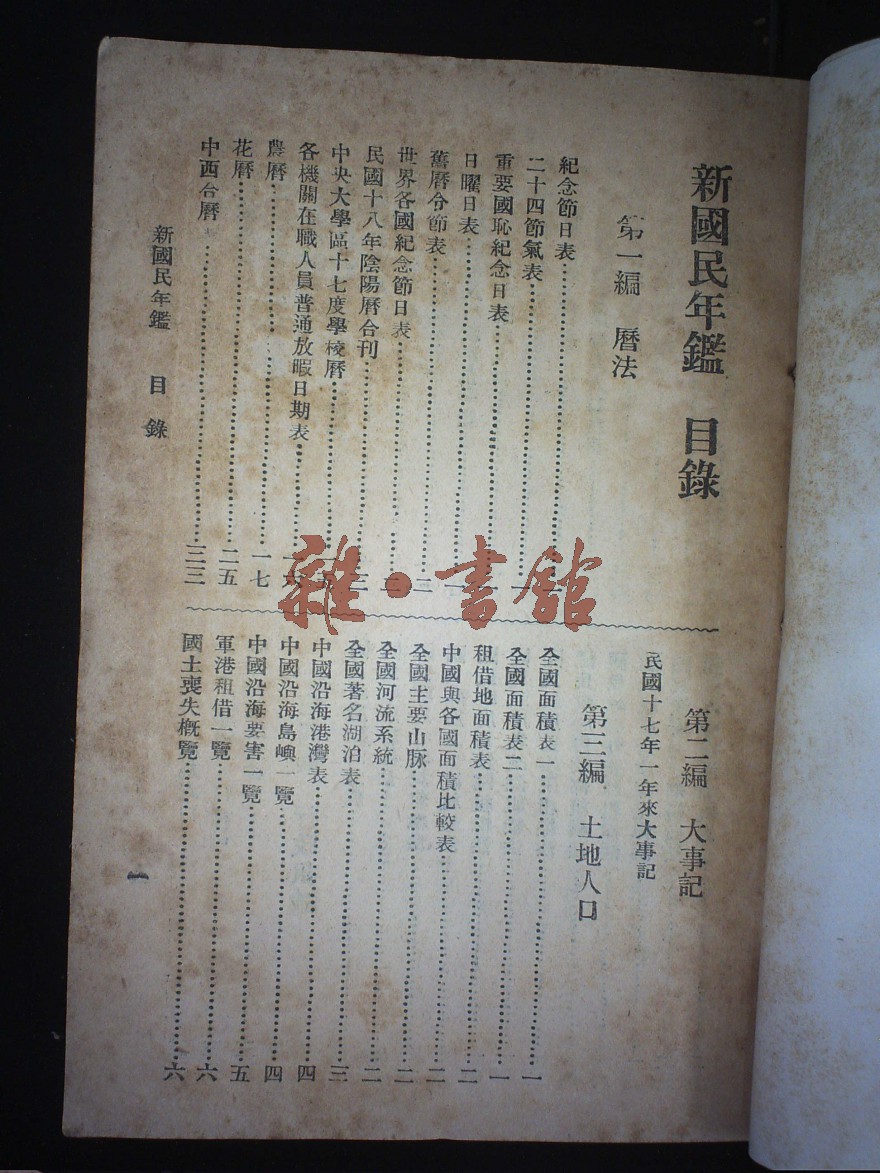 新國民年鑑 目錄
第一編 曆法
紀念節日表
二十四節氣表
重要國恥紀念日表
日曜日表
舊曆分節表……二
世界各國紀念節日表
民國十八年陰陽曆合刊
中央大學區十七度學校曆
各機關在職人員普通放暇日期表
農曆……一七
花曆……二五
中西合曆……三三
第二編 大事記
民國十七年一年來大事記
第三編 土地人口
全國面積表一……一
全國面積表二……一
租借地面積表……二
中國與各國面積比較表……二
全國主要山脉……二
全國河流系統……二
全國著名湖泊表……三
中國沿海港灣表……四
中國沿海島嶼一覽……四
中國沿海要害一覽……五
軍港租借一覽……六
國土喪失概覽……六
新國民年鑑 目錄
一
雜·書館